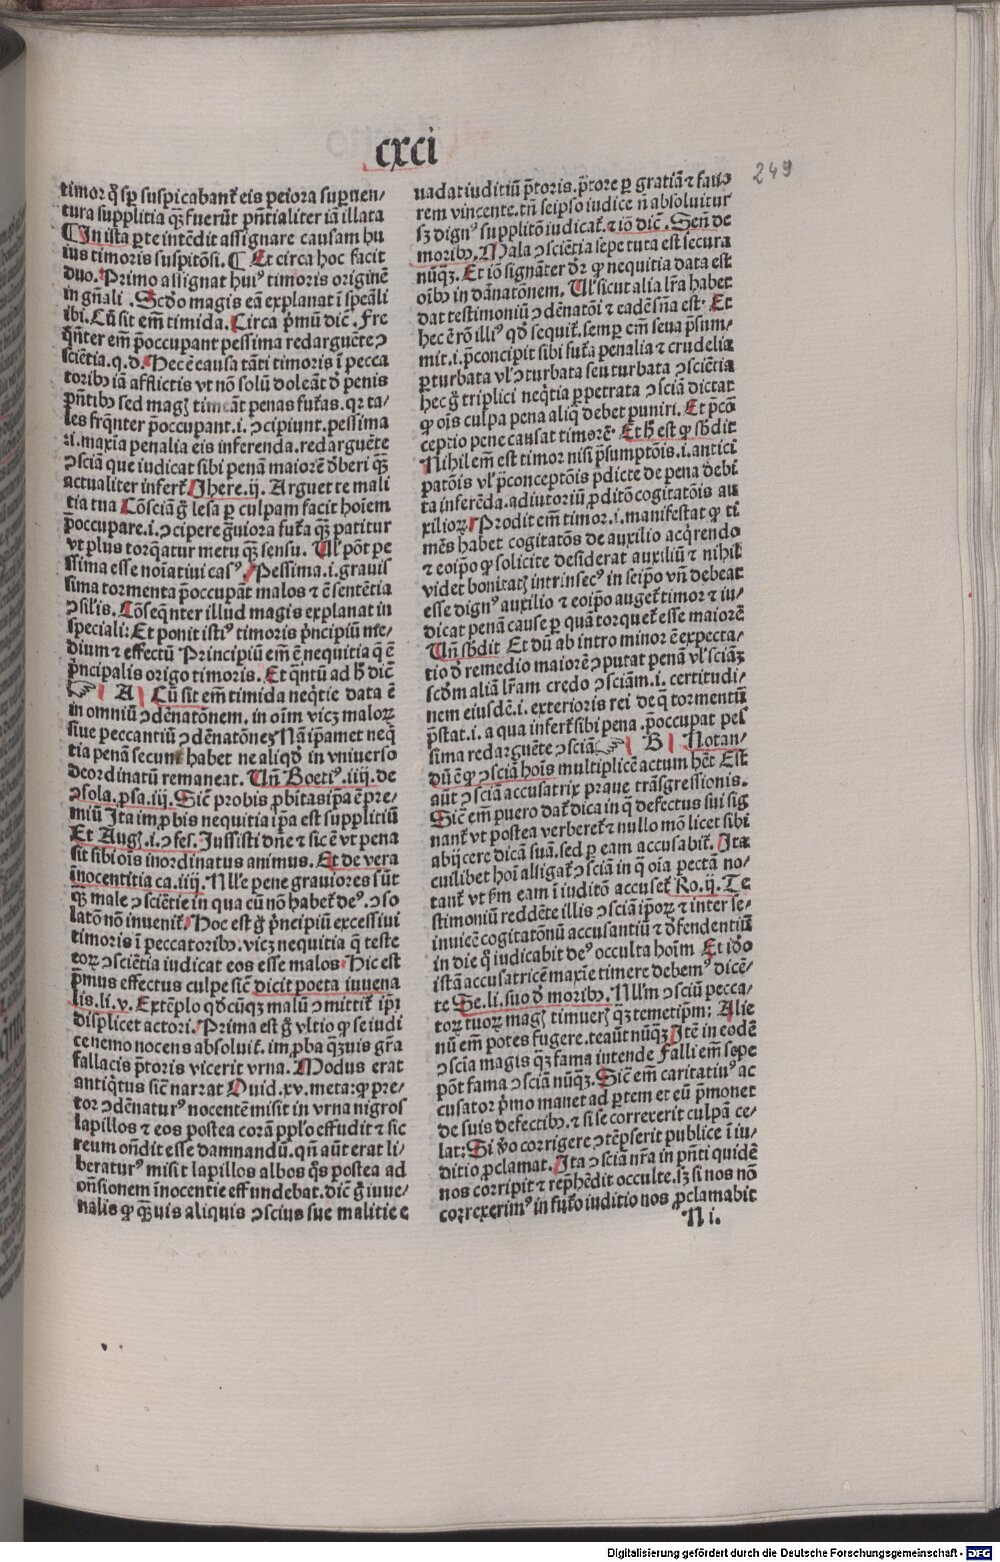 cxci
249
timor q̄ sꝑ suspicabant᷑ eis peiora suꝑuen⸗
tura supplitia qꝫ fuerūt pn̄tialiter iā illata
¶ In ista ꝑte intēdit assignare causam hu
ius timoris suspitōsi. ¶ Et circa hoc facit
duo. Primo assignat huiꝰ timoris originē
in gn̄ali. Scd̓o magis eā explanat ī speāli
ibi. Cū sit em̄ timida. Circa p̄mū dic̄. Fre
q̄nter em̄ p̄occupant pessima redarguēte ↄ
sciētia. q.d. Hec ē causa tāti timoris ī pecca
toribꝫ iā afflictis vt nō solū doleāt d̓ penis
pn̄tibꝫ sed magꝭ timeāt penas fut᷑as. qꝛ ta⸗
les frq̄nter p̄occupant .i. ↄcipiunt. pessima
.i. maxīa penalia eis inferenda. redarguēte
ↄsciā que iudicat sibi penā maiorē d̓beri qꝫ̄
actualiter infert᷑. Jhere. ij. Arguet te mali
tia tua Cōsciā g̊ lesa ꝑ culpam facit hoīem
p̄occupare .i. ↄcipere g̊uiora fut᷑a qꝫ̄ patitur
vt plus torq̄atur metu qꝫ̄ sensu. Ul̓ pōt pe
ssima esse noīatiui casꝰ Pessima .i. grauis
sima tormenta p̄occupāt malos ⁊ ē sentētia
ↄsilis. Cōseq̄nter illud magis explanat in
speciali: Et ponit istiꝰ timoris p̄ncipiū me⸗
dium ⁊ effectū Principiū em̄ ē nequitia q̄ ē
p̄ncipalis origo timoris. Et q̄ntū ad h̓ dic̄
☞ A Cū sit em̄ timida neq̄tie data ē
in omniū ↄdēnatōnem. in oīm vicꝫ maloꝝ
siue peccantiū ↄdēnatōneꝫ Nā ip̄amet neq̄
tia penā secum habet ne aliqd̓ in vniuerso
deordinatū remaneat. Un̄ Boetiꝰ .iiij. de
ↄsola. ꝓsa. iij. Sic̄ probis ꝓbitas ip̄a ē pre⸗
miū Ita imꝓbis nequitia ip̄a est supplitiū
Et Augꝭ. i. ↄfes. Iussisti dn̄e ⁊ sic ē vt pena
sit sibi oīs inordinatus animus. Et de vera
īnocentitia ca. iiij. Nlle pene grauiores sūt
qꝫ̄ male ↄsciētie in qua cū nō habet᷑ deꝰ. ↄso
latō nō inuenit᷑. Hoc est g̊ p̄ncipiū excessiui
timoris ī peccatoribꝫ. vicꝫ nequitia q̄ teste
eoꝝ ↄsciētia iudicat eos esse malos Hic est
p̄mus effectus culpe sic̄ dicit poeta iuuena
lis. li. v. Extēplo qd̓cūqꝫ malū ↄmittit᷑ ip̄i
displicet actori. Prima est g̊ vltio ꝙ se iudi
ce nemo nocens absoluit᷑. imꝓba qꝫ̄uis gr̄a
fallacis p̄toris vicerit vrna. Modus erat
antiq̄tus sic̄ narrat Ouid. xv. meta: ꝙ pre⸗
tor ↄdēnaturꝰ nocentē misit in vrna nigros
lapillos ⁊ eos postea corā pplo̓ effudit ⁊ sic
reum on̄dit esse damnandū. qn̄ aūt erat li⸗
beraturꝰ misit lapillos albos q̊s postea ad
on̄sionem īnocentie effundebat. dic̄ g̊ iuue⸗
nalis ꝙ qꝫ̄uis aliquis ↄscius sue malitie e
uadat iuditiū p̄toris. p̄tore ꝑ gratiā ⁊ fauo
rem vincente. tn̄ seip̄so iudice n̄ absoluitur
sꝫ dignꝰ supplitō iudicat᷑. ⁊ iō dic̄. Sen̄ de
moribꝫ. Mala ↄsciētia sepe tuta est secura
nūqꝫ. Et iō signāter dr̄ ꝙ nequitia data est
oībꝫ in dānatōnem. Ul̓ sicut alia lr̄a habet
dat testimoniū ↄdēnatōi ⁊ eadē sn̄a est. Et
hec ē rō illiꝰ qd̓ sequit᷑. semꝑ em̄ seua p̄sum⸗
mit .i. p̄concipit sibi fut᷑a penalia ⁊ crudelia
ꝑturbata vl̓ ↄturbata seu turbata ↄsciētia
hec g̊ triplici neq̄tia ꝑpetrata ↄsciā dictat
ꝙ oīs culpa pena aliq̄ debet puniri. Et p̄cō
ceptio pene causat timorē. Et h̓ est ꝙ sb̓dit
Nihil em̄ est timor nisi p̄sumptōis .i. antici
patōis vl̓ p̄conceptōis p̄dicte de pena debi
ta inferēda. adiutoriū ꝓditō cogitatōis au
xilioꝝ Prodit em̄ timor .i. manifestat ꝙ ti
mēs habet cogitatōs de auxilio acq̄rendo
⁊ eoip̄o ꝙ solicite desiderat auxiliū ⁊ nihil
videt bonitatꝭ intrinsecꝰ in seip̄o vn̄ debeat
esse dignꝰ auxilio ⁊ eoip̄o auget᷑ timor ⁊ iu⸗
dicat penā cause ꝑ quā torquet᷑ esse maiorē
Un̄ sb̓dit Et dū ab intro minor ē expecta⸗
tio d̓ remedio maiorē ↄputat penā vl̓ sciāꝫ
scd̓m aliā lr̄am credo ↄsciām .i. certitudi⸗
nem eiusdē .i. exterioris rei de q̄ tormentū
p̄stat .i. a qua infert᷑ sibi pena. p̄occupat pes
sima redarguēte ↄsciā ☞ B Notan⸗
dū ē ꝙ ↄsciā hoīs multiplicē actum hēt Est
aūt ↄsciā accusatrix praue trāsgressionis.
Sic̄ em̄ puero dat᷑ dica in q̄ defectus sui sig
nant᷑ vt postea verberet᷑ ⁊ nullo mō licet sibi
abijcere dicā suā. sed ꝑ eam accusabit᷑. Ita
cuilibet hoī alligat᷑ ↄsciā in q̄ oīa pectā no⸗
tant᷑ vt ꝑm eam ī iuditō accuset᷑ Ro. ij. Te
stimoniū reddēte illis ↄsciā ip̄oꝝ ⁊ inter se⸗
inuicē cogitatōnū accusantiū ⁊ d̓fendentiū
in die q̄ iudicabit deꝰ occulta hoīm Et id̓o
istā accusatricē maxīe timere debemꝰ dicē⸗
te Se. li. suo d̓ moribꝫ. Nll̓m ↄsciū pecca⸗
toꝝ tuoꝝ magꝭ timuerꝭ qꝫ̄ temetip̄m: Alie
nū em̄ potes fugere. te aūt nūqꝫ̄ Itē in eodē
ↄscīa magis qꝫ̄ fama intende Falli em̄ sepe
pōt fama ↄsciā nūqꝫ̄. Sic̄ em̄ caritatiuꝰ ac
cusator p̄mo manet ad ꝑtem et eū p̄monet
de suis defectibꝫ. ⁊ si se correxerit culpā ce⸗
lat: Si v̓o corrigere ↄtēpserit publice ī iu⸗
ditio ꝓclamat. Ita ↄsciā nr̄a in pn̄ti quidē
nos corripit ⁊ rep̄hēdit occulte. sꝫ si nos nō
correxerimꝰ in fut᷑o iuditio nos ꝓclamabit
N i.
Digitalisierung gefördert durch die Deutsche Forschungsgemeinschaft - DFG